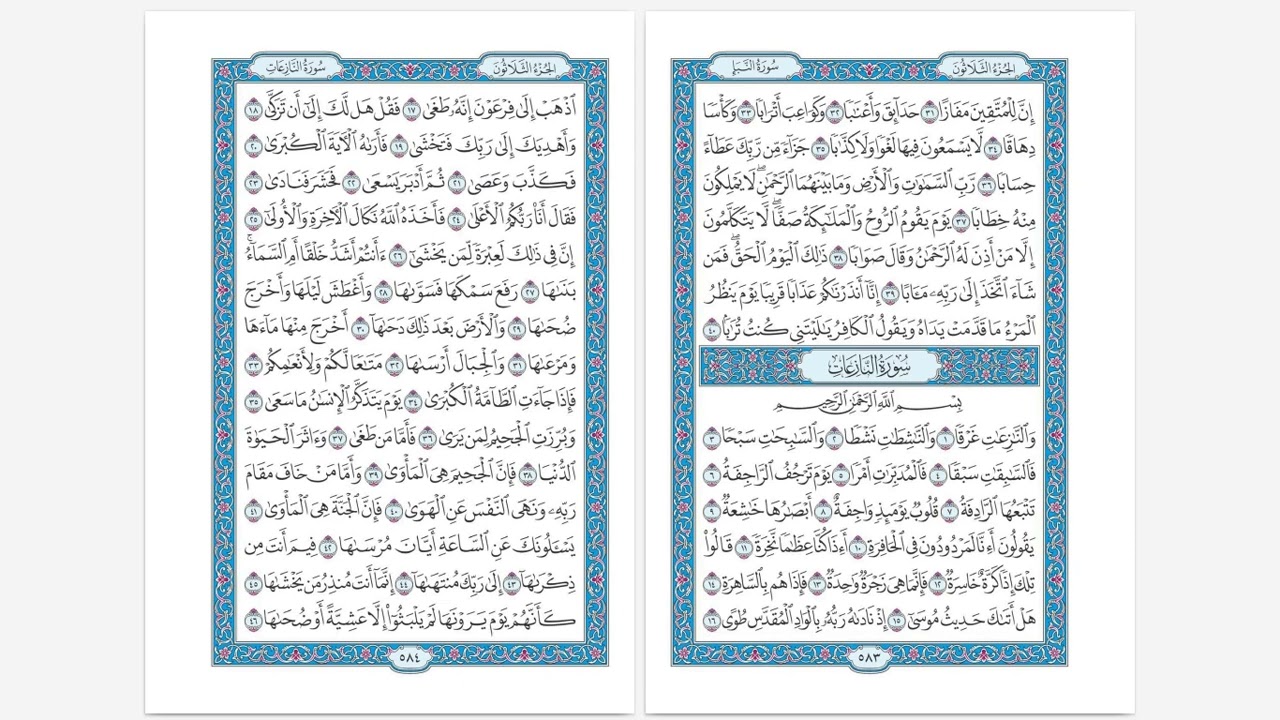 الجُزْءُ الثَّلَاثُونَ
سُورَةُ النَّبَإِ
إِنَّ لِلْمُتَّقِينَ مَفَازًا ٣١ حَدَآئِقَ وَأَعْنَٰبًا ٣٢ وَكَوَاعِبَ أَتْرَابًا ٣٣ وَكَأْسًا
دِهَاقًا ٣٤ لَّا يَسْمَعُونَ فِيهَا لَغْوًا وَلَا كِذَّٰبًا ٣٥ جَزَآءً مِّن رَّبِّكَ عَطَآءً
حِسَابًا ٣٦ رَّبِّ ٱلسَّمَٰوَٰتِ وَٱلْأَرْضِ وَمَا بَيْنَهُمَا ٱلرَّحْمَٰنِۖ لَا يَمْلِكُونَ
مِنْهُ خِطَابًا ٣٧ يَوْمَ يَقُومُ ٱلرُّوحُ وَٱلْمَلَٰٓئِكَةُ صَفًّاۖ لَّا يَتَكَلَّمُونَ
إِلَّا مَنْ أَذِنَ لَهُ ٱلرَّحْمَٰنُ وَقَالَ صَوَابًا ٣٨ ذَٰلِكَ ٱلْيَوْمُ ٱلْحَقُّۖ فَمَن
شَآءَ ٱتَّخَذَ إِلَىٰ رَبِّهِۦ مَـَٔابًا ٣٩ إِنَّآ أَنذَرْنَٰكُمْ عَذَابًا قَرِيبًا يَوْمَ يَنظُرُ
ٱلْمَرْءُ مَا قَدَّمَتْ يَدَاهُ وَيَقُولُ ٱلْكَافِرُ يَٰلَيْتَنِى كُنتُ تُرَٰبًۢا ٤٠
سُورَةُ النَّازِعَاتِ
بِسْمِ ٱللَّهِ ٱلرَّحْمَٰنِ ٱلرَّحِيمِ
وَٱلنَّٰزِعَٰتِ غَرْقًا ١ وَٱلنَّٰشِطَٰتِ نَشْطًا ٢ وَٱلسَّٰبِحَٰتِ سَبْحًا ٣
فَٱلسَّٰبِقَٰتِ سَبْقًا ٤ فَٱلْمُدَبِّرَٰتِ أَمْرًا ٥ يَوْمَ تَرْجُفُ ٱلرَّاجِفَةُ ٦
تَتْبَعُهَا ٱلرَّادِفَةُ ٧ قُلُوبٌ يَوْمَئِذٍ وَاجِفَةٌ ٨ أَبْصَٰرُهَا خَٰشِعَةٌ ٩
يَقُولُونَ أَءِنَّا لَمَرْدُودُونَ فِى ٱلْحَافِرَةِ ١٠ أَءِذَا كُنَّا عِظَٰمًا نَّخِرَةً ١١ قَالُوا۟
تِلْكَ إِذًا كَرَّةٌ خَاسِرَةٌ ١٢ فَإِنَّمَا هِىَ زَجْرَةٌ وَٰحِدَةٌ ١٣ فَإِذَا هُم بِٱلسَّاهِرَةِ ١٤
هَلْ أَتَىٰكَ حَدِيثُ مُوسَىٰٓ ١٥ إِذْ نَادَىٰهُ رَبُّهُۥ بِٱلْوَادِ ٱلْمُقَدَّسِ طُوًى ١٦
٥٨٣
الجُزْءُ الثَّلَاثُونَ
سُورَةُ النَّازِعَاتِ
ٱذْهَبْ إِلَىٰ فِرْعَوْنَ إِنَّهُۥ طَغَىٰ ١٧ فَقُلْ هَل لَّكَ إِلَىٰٓ أَن تَزَكَّىٰ ١٨
وَأَهْدِيَكَ إِلَىٰ رَبِّكَ فَتَخْشَىٰ ١٩ فَأَرَىٰهُ ٱلْـَٔايَةَ ٱلْكُبْرَىٰ ٢٠
فَكَذَّبَ وَعَصَىٰ ٢١ ثُمَّ أَدْبَرَ يَسْعَىٰ ٢٢ فَحَشَرَ فَنَادَىٰ ٢٣
فَقَالَ أَنَا۠ رَبُّكُمُ ٱلْأَعْلَىٰ ٢٤ فَأَخَذَهُ ٱللَّهُ نَكَالَ ٱلْـَٔاخِرَةِ وَٱلْأُولَىٰٓ ٢٥
إِنَّ فِى ذَٰلِكَ لَعِبْرَةً لِّمَن يَخْشَىٰٓ ٢٦ ءَأَنتُمْ أَشَدُّ خَلْقًا أَمِ ٱلسَّمَآءُۚ
بَنَىٰهَا ٢٧ رَفَعَ سَمْكَهَا فَسَوَّىٰهَا ٢٨ وَأَغْطَشَ لَيْلَهَا وَأَخْرَجَ
ضُحَىٰهَا ٢٩ وَٱلْأَرْضَ بَعْدَ ذَٰلِكَ دَحَىٰهَآ ٣٠ أَخْرَجَ مِنْهَا مَآءَهَا
وَمَرْعَىٰهَا ٣١ وَٱلْجِبَالَ أَرْسَىٰهَا ٣٢ مَتَٰعًا لَّكُمْ وَلِأَنْعَٰمِكُمْ ٣٣
فَإِذَا جَآءَتِ ٱلطَّآمَّةُ ٱلْكُبْرَىٰ ٣٤ يَوْمَ يَتَذَكَّرُ ٱلْإِنسَٰنُ مَا سَعَىٰ ٣٥
وَبُرِّزَتِ ٱلْجَحِيمُ لِمَن يَرَىٰ ٣٦ فَأَمَّا مَن طَغَىٰ ٣٧ وَءَاثَرَ ٱلْحَيَوٰةَ
ٱلدُّنْيَا ٣٨ فَإِنَّ ٱلْجَحِيمَ هِىَ ٱلْمَأْوَىٰ ٣٩ وَأَمَّا مَنْ خَافَ مَقَامَ
رَبِّهِۦ وَنَهَى ٱلنَّفْسَ عَنِ ٱلْهَوَىٰ ٤٠ فَإِنَّ ٱلْجَنَّةَ هِىَ ٱلْمَأْوَىٰ ٤١
يَسْـَٔلُونَكَ عَنِ ٱلسَّاعَةِ أَيَّانَ مُرْسَىٰهَا ٤٢ فِيمَ أَنتَ مِن
ذِكْرَىٰهَآ ٤٣ إِلَىٰ رَبِّكَ مُنتَهَىٰهَآ ٤٤ إِنَّمَآ أَنتَ مُنذِرُ مَن يَخْشَىٰهَا ٤٥
كَأَنَّهُمْ يَوْمَ يَرَوْنَهَا لَمْ يَلْبَثُوٓا۟ إِلَّا عَشِيَّةً أَوْ ضُحَىٰهَا ٤٦
٥٨٤